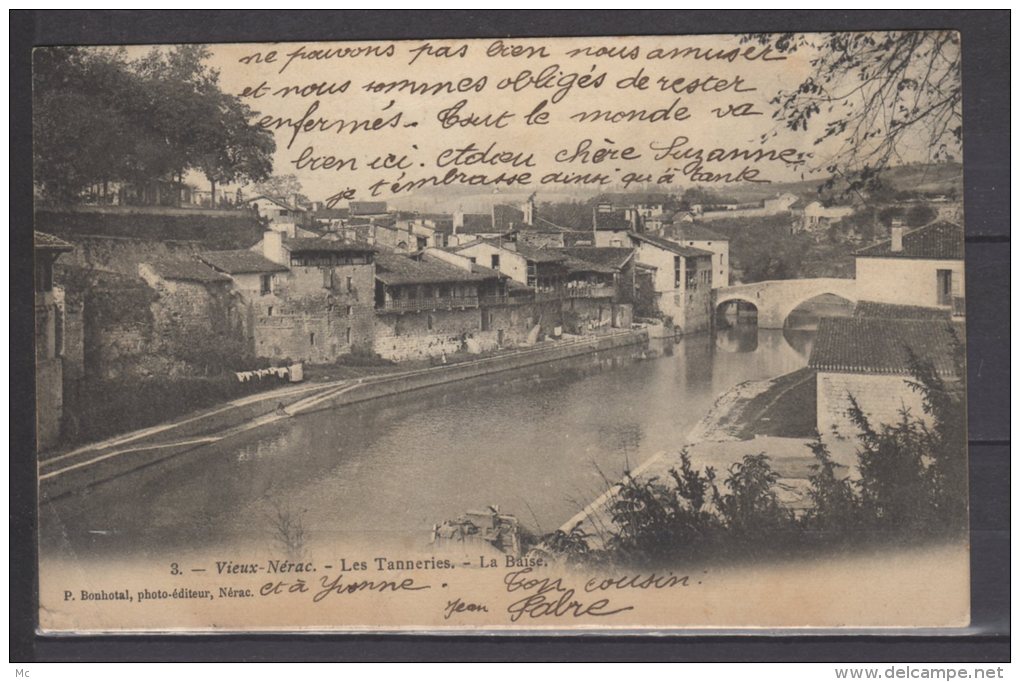 ne pouvons pas bien nous amuser
et nous sommes obligés de rester
enfermés. Tout le monde va
bien ici. Adieu chère Suzanne
je t'embrasse ainsi qu'à tante
3. — Vieux-Nérac. - Les Tanneries. - La Baïse.
P. Bonhotal, photo-éditeur, Nérac.
et à Yvonne. Ton cousin
Jean Fabre
Mc
www.delcampe.net